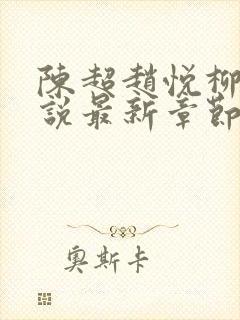 陳超趙悅柳
說最新章節
奧斯卡